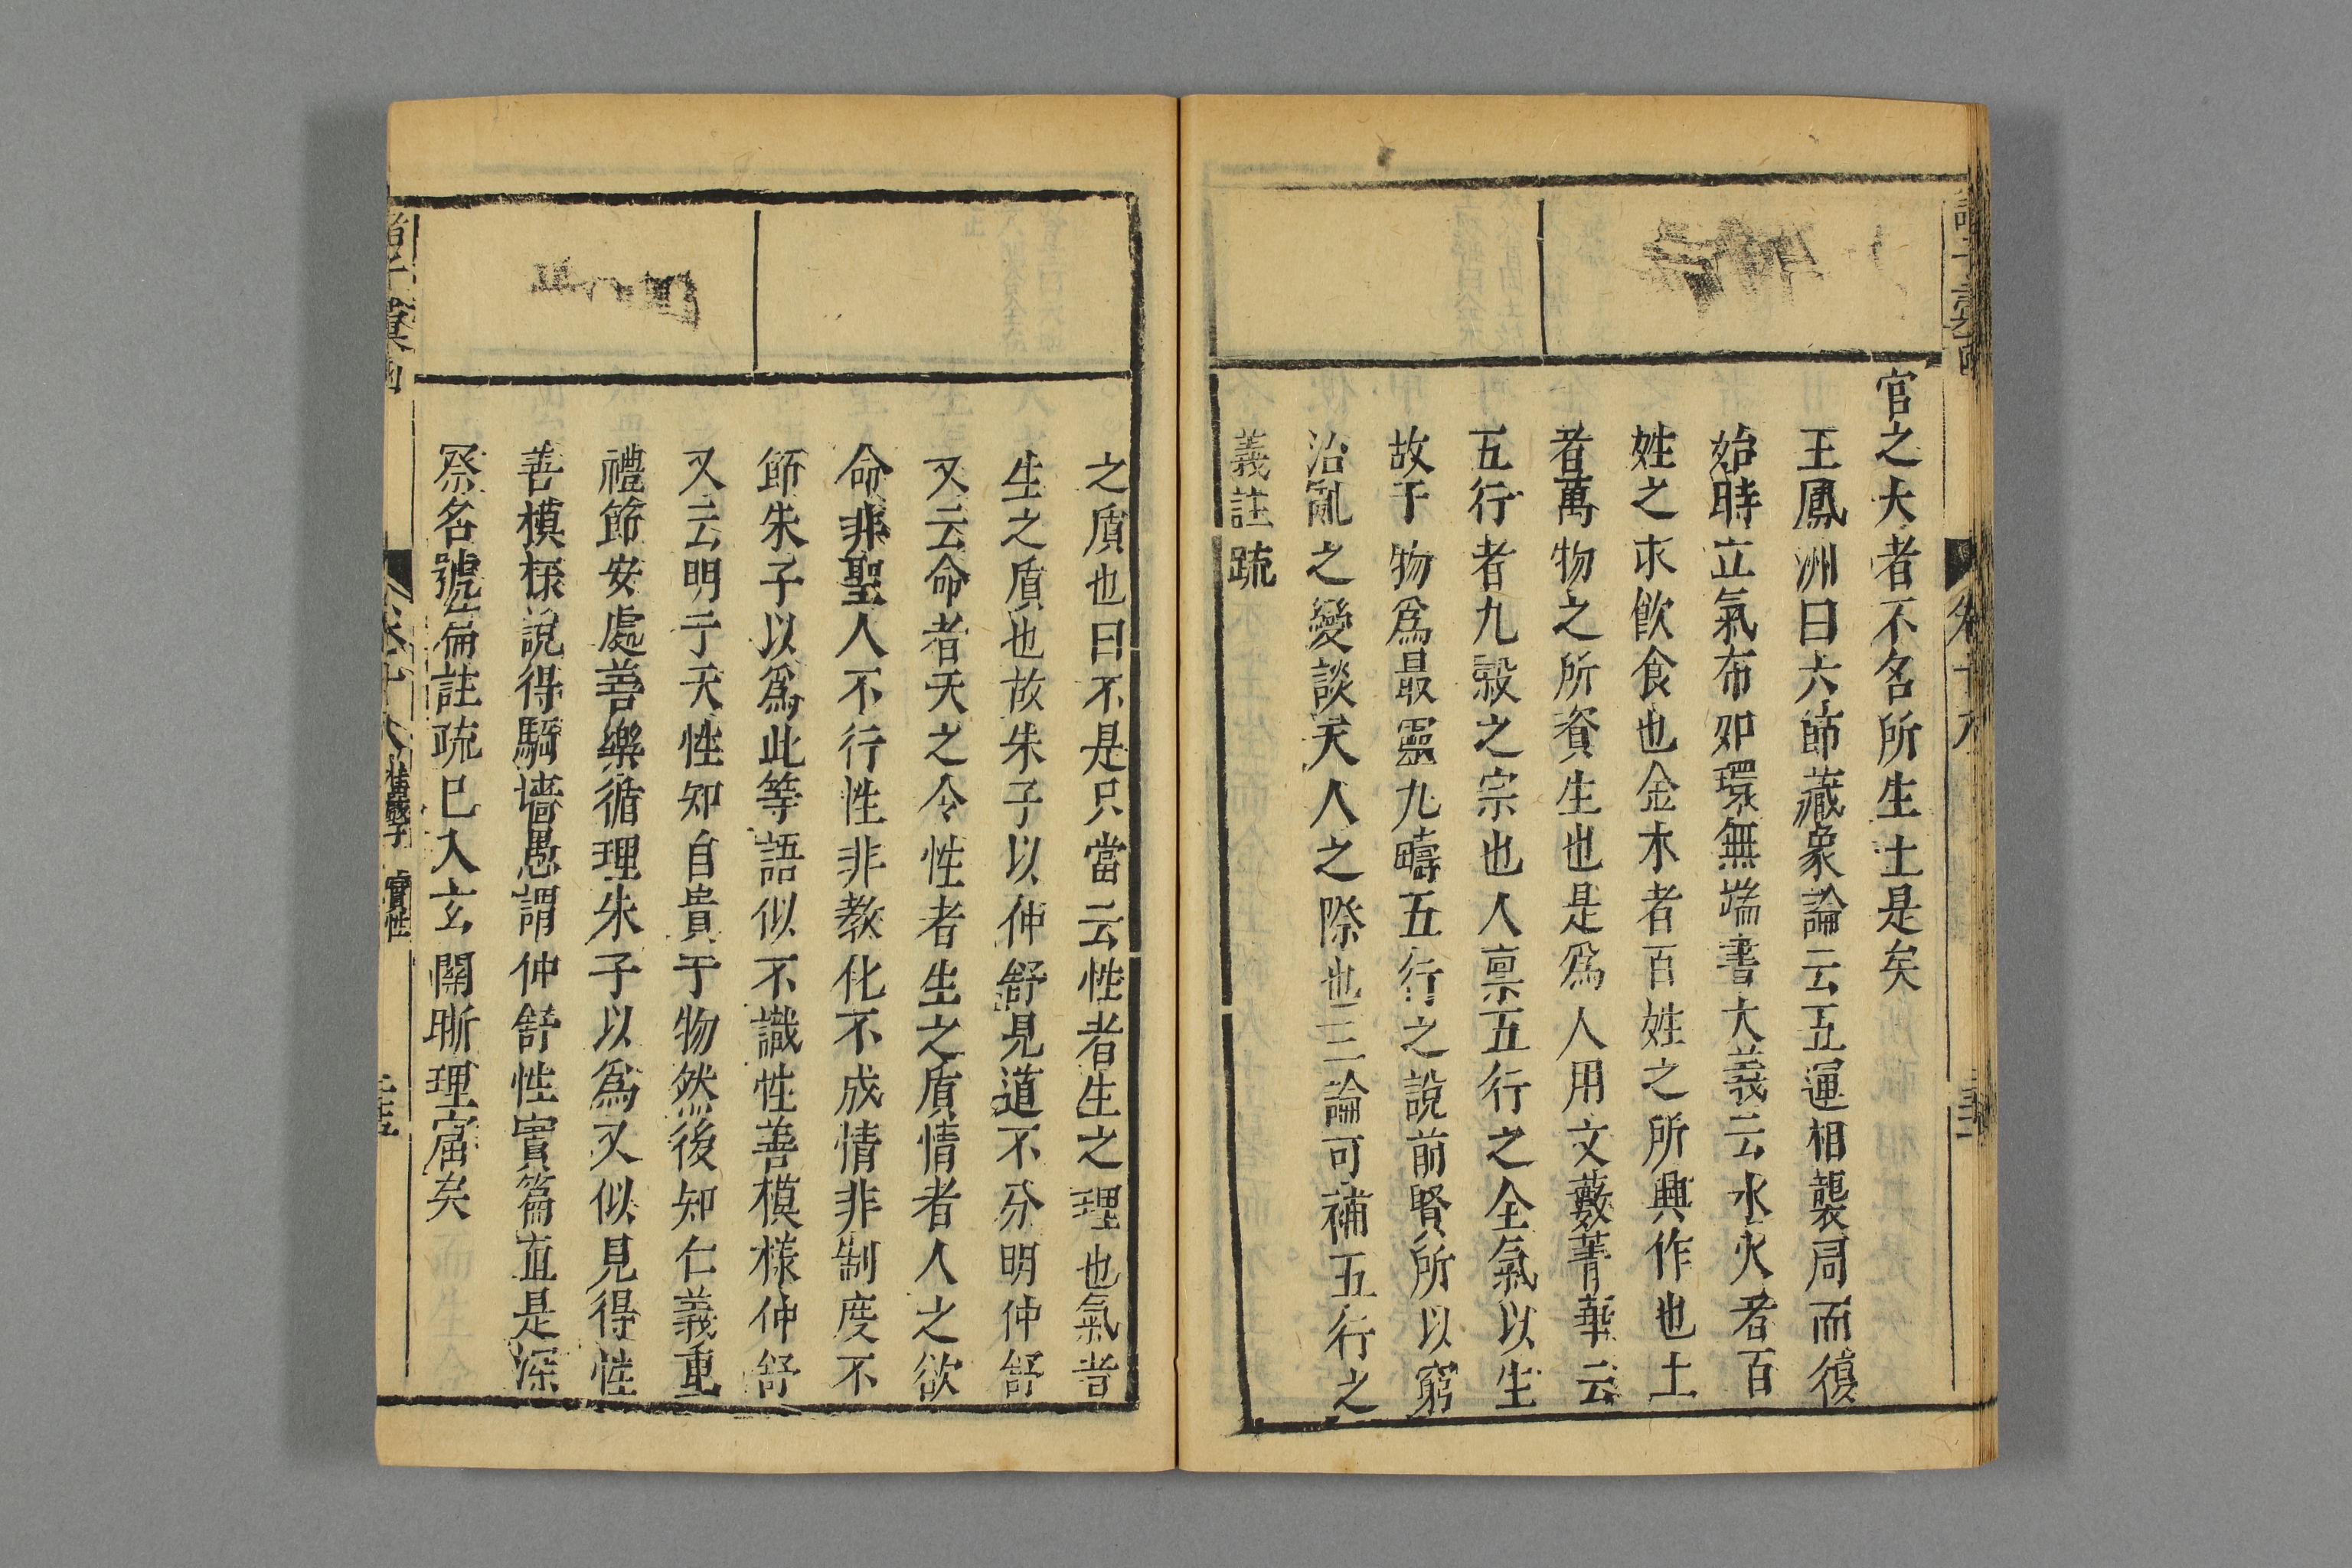 官之大者不名所生土是矣
王鳳洲曰六節藏象論云五運相襲周而復
始時立氣布如環無端書大義云水火者百
姓之求飲食也金木者百姓之所興作也土
者萬物之所資生也是爲人用文藪菁華云
五行者九穀之宗也人禀五行之全氣以生
故于物爲最靈九疇五行之說前賢所以窮
治亂之變談天人之際也三論可補五行之
義註疏
之質也曰不是只當云性者生之理也氣者
生之質也故朱子以仲舒見道不分明仲舒
又云命者天之令性者生之質情者人之欲
命非聖人不行性非教化不成情非制度不
節朱子以爲此等語似不識性善模樣仲舒
又云明于天性知自貴于物然後知仁義重
禮節安處善樂循理朱子以爲又似見得性
善模樣說得騎墻愚謂仲舒性實篇直是深
察名號倫註疏已入玄關晰理窟矣